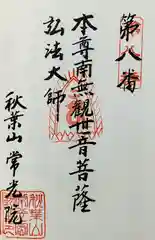 第八番
本尊南無觀世音菩薩
弘法大師
秋葉山常光院